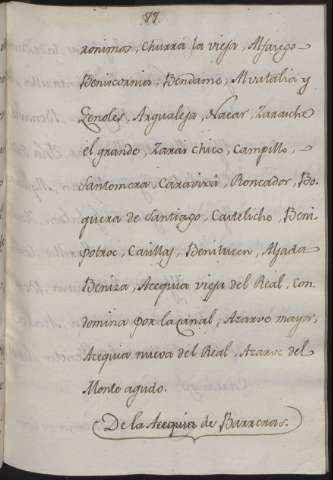 77.
ronimas, Churra la vieja, Aljarego
Beniscornia, Bendame, Alvatalia y
Zenoles, Argualeja, Nacar, Zaraiche
el grande, Zarai Chico, Campillo,
Santomera, Caravixa, Roncador, Bo-
quera de Santiago, Casteliche, Beni
potroc, Casillas, Benitucen, Aljada
Beniza, Acequia vieja del Real, Con
domina por la Canal, Azarve mayor,
Acequia nueva del Real, Azarve del
Monte agudo.
De la Acequia de Barreras.